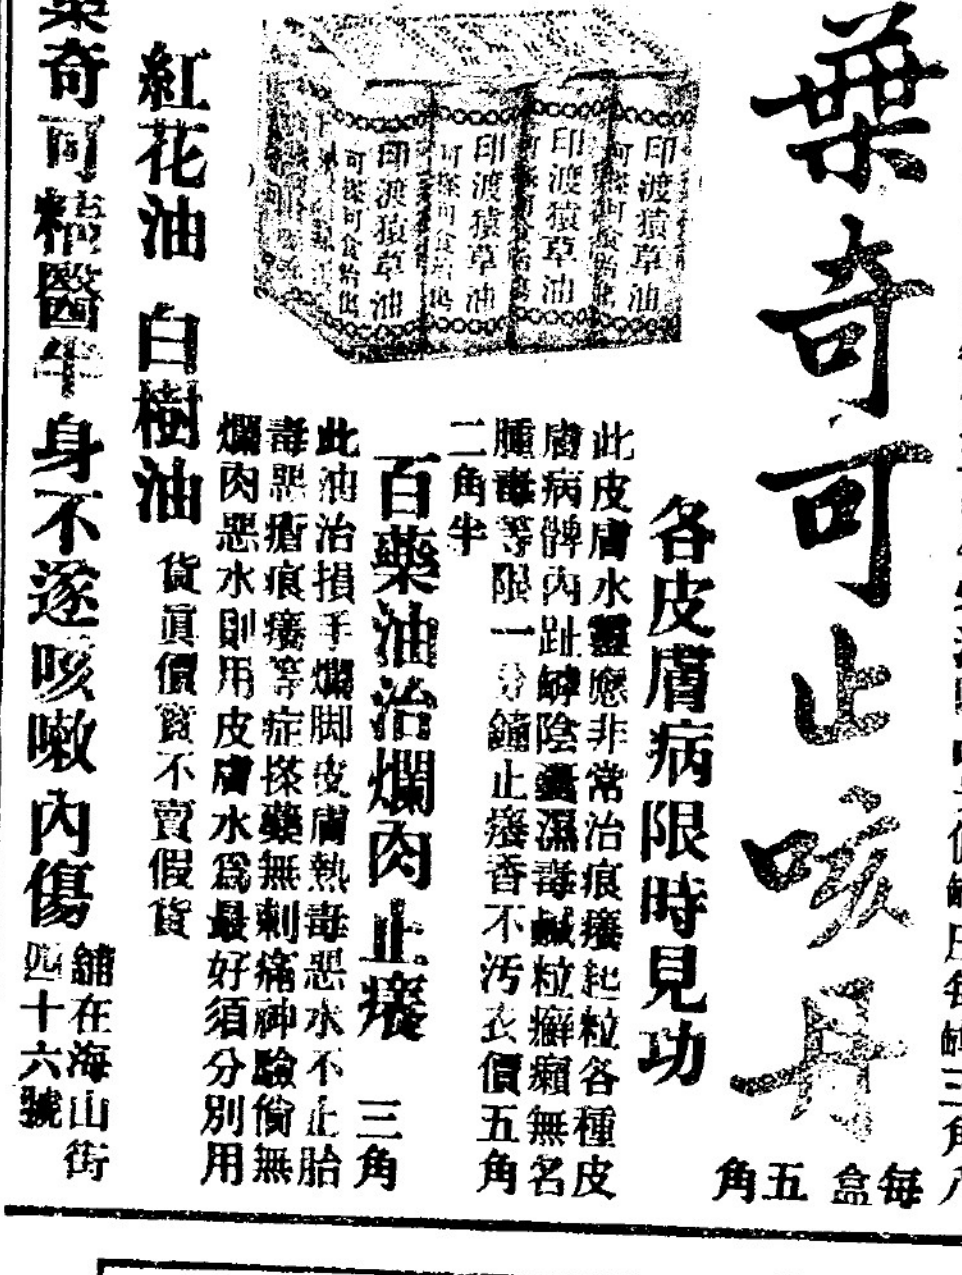 葉奇可止咳丹
每盒五角
印渡猿草油
印渡猿草油
印渡猿草油
印渡猿草油
各皮膚病限時見功
此皮膚水靈應非常治痕癢起粒各種皮
膚病髀內趾罅陰囊濕毒鹹粒癬癩無名
腫毒等限一分鐘止癢香不汚衣價五角
二角半
百藥油治爛肉止癢 三角
此油治損手爛脚皮膚熱毒惡水不止胎
毒惡瘡痕癢等症搽藥無刺痛神驗倘無
爛肉惡水則用皮膚水爲最好須分別用
紅花油 白樹油
貨眞價實不賣假貨
葉奇可精醫半身不遂咳嗽內傷
舖在海山街
四十六號